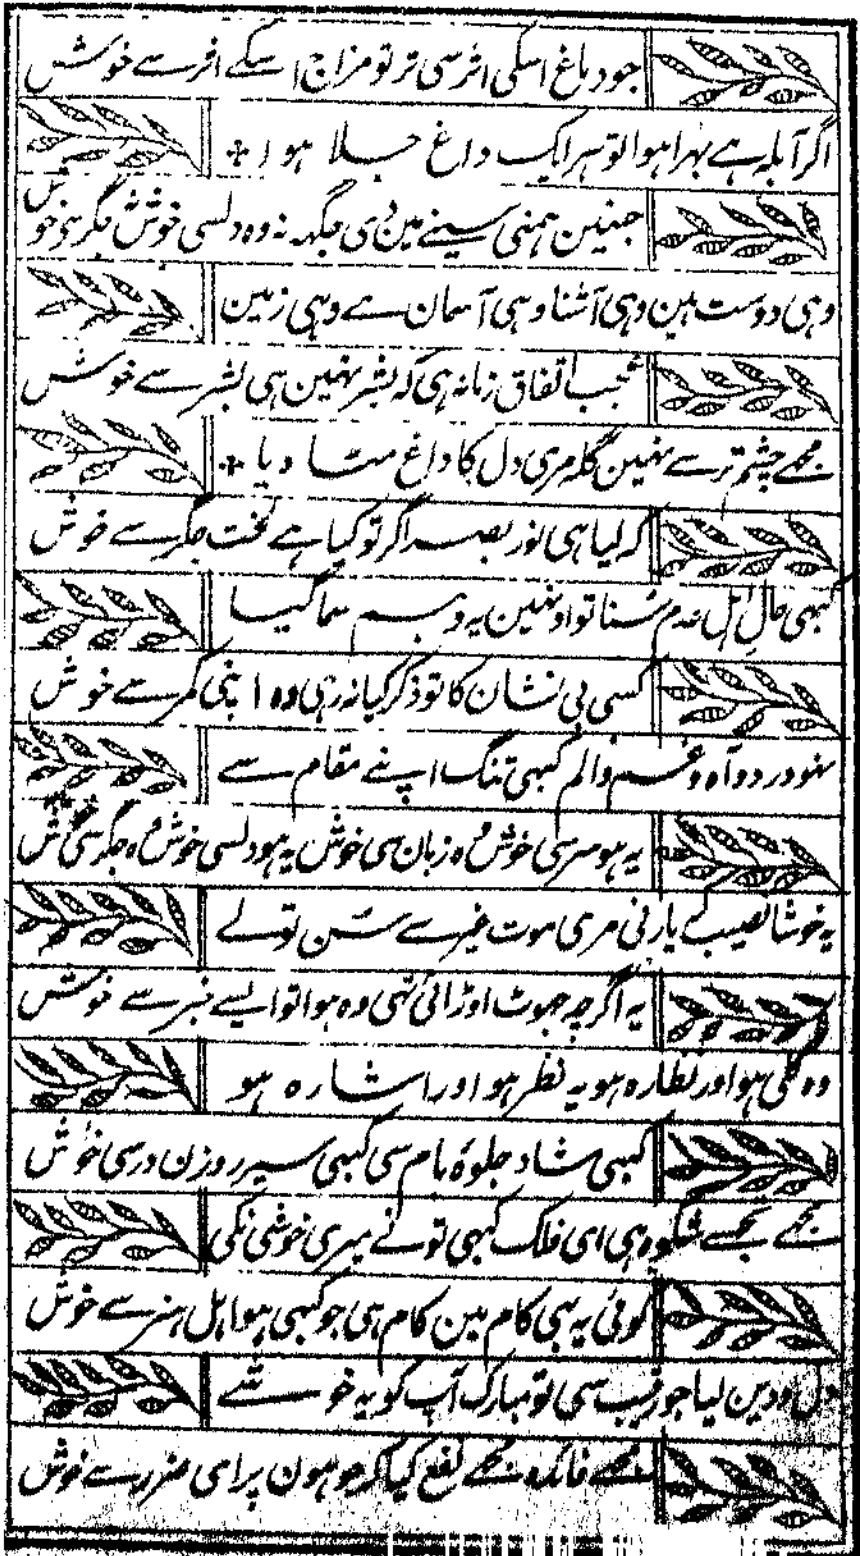 جو دماغ اسکی اثر سی تر تو مزاج اسکے اثر سے خوش
اگر آبلہ ہے بہرا ہوا تو ہر ایک داغ جلا ہوا
جنہین ہمنی سینے مین دی جگہہ نہ وہ دلسی خوش جگر سی خوش
وہی دوست ہین وہی آشنا وہی آسمان ہے وہی زمین
عجب اتفاق زمانہ ہی کہ بشر نہین ہی بشر سے خوش
مجھے چشم تر سے نہین گلہ مری دل کا داغ مٹا دیا
کہ گیا ہی نور بصر اگر تو کیا ہے لخت جگر سے خوش
کبہی حال اہل عدم سنا تو اونہین یہ وہم سما گیا
کسی بی نشان کا تو ذکر کیا نہ رہی وہ اپنی کمر سے خوش
نہو درد و آہ و غم و الم کبہی تنگ اپنے مقام سے
یہ ہو سر سی خوش وہ زبان سی خوش یہ ہو دلسی خوش وہ جگر سی خوش
یہ خوشا نصیب کے یار نی مری موت غیر سے سن تو لے
یہ اگرچہ جہوٹ اوڑائی تہی وہ ہوا تو ایسے خبر سے خوش
وہ گلی ہو اور نظارہ ہو یہ نظر ہو اور اشارہ ہو
کبہی شاد جلوۂ بام سی کبہی سیر روزن در سی خوش
مجھے تجھسے شکوہ ہی ای فلک کبہی تونے میری خوشی نکی
کوئی یہ بہی کام مین کام ہی جو کبہی ہوا اہل ہنر سے خوش
دل و دین لیا جو رقیب سی تو مبارک آپ کو یہ خوشے
مجھے فائدہ مجھے نفع کیا کہ جو ہون پرای ضرر سے خوش